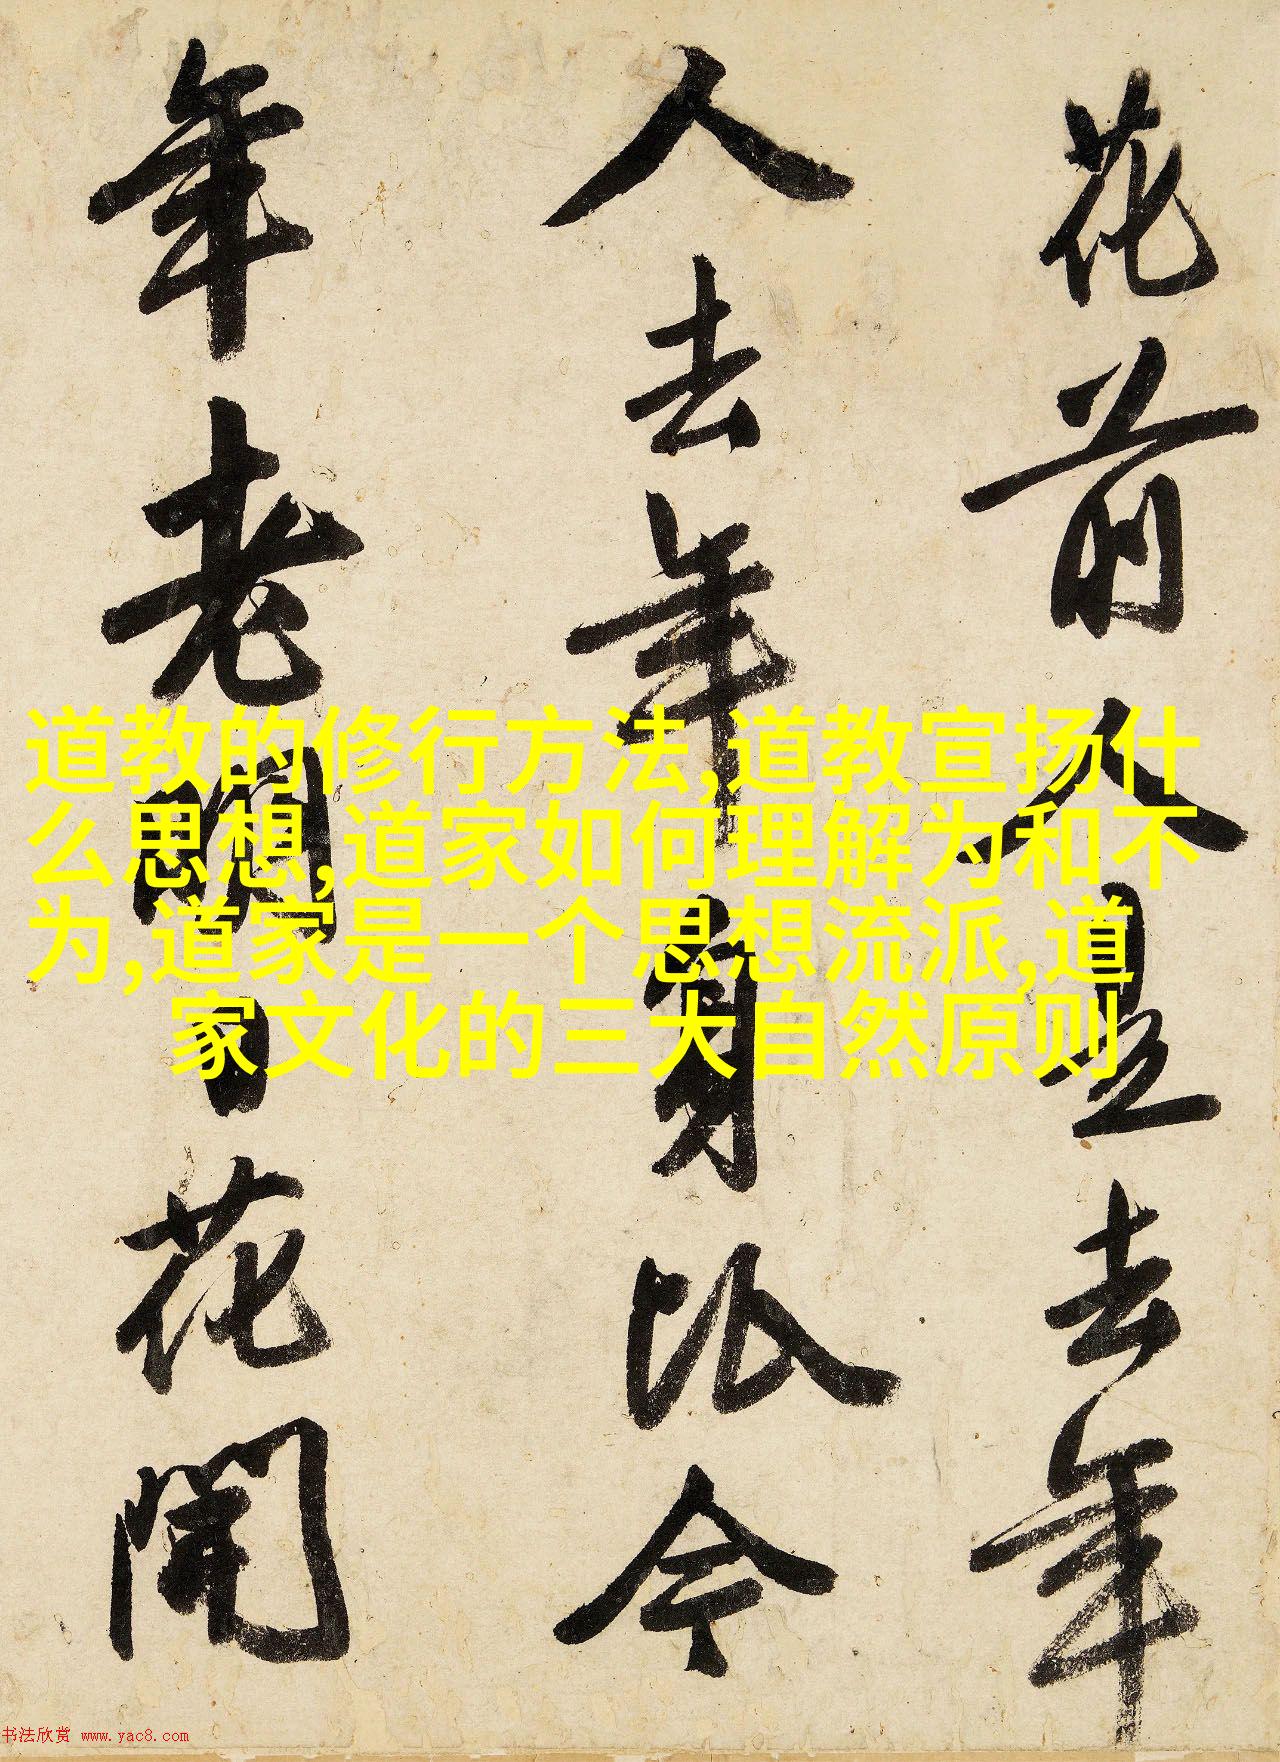 花前人是去年
人去年身比今
年老明日花開
道教的修行方法,道教宣扬什
么思想,道家如何理解为和不
为,道家是一个思想流派,道
家文化的三大自然原则
书法欣赏 www.yac8.com